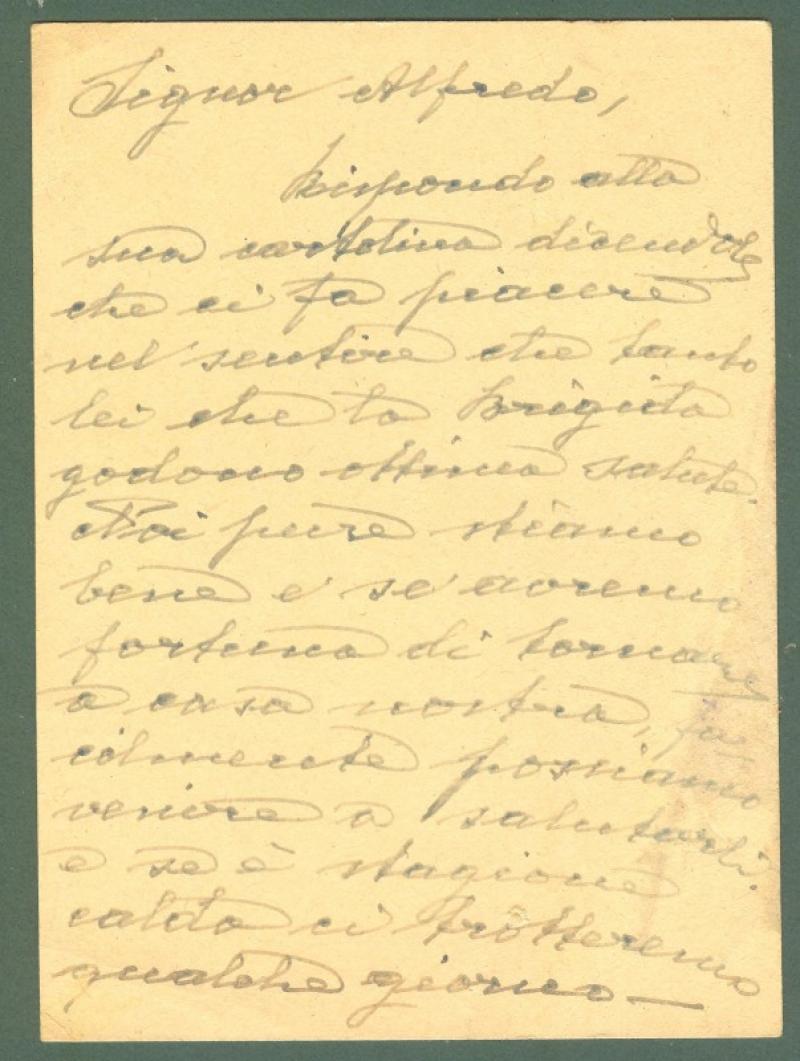 Signor Alfredo,
Rispondo alla
sua cartolina dicendole
che ci fa piacere
nel sentire che tanto
lei che la Brigida
godono ottima salute.
Noi pure stiamo
bene e se avremo
fortuna di tornare
a casa nostra, fa-
cilmente possiamo
venire a salutarli.
e se è stagione
calda ci tratteremo
qualche giorno —